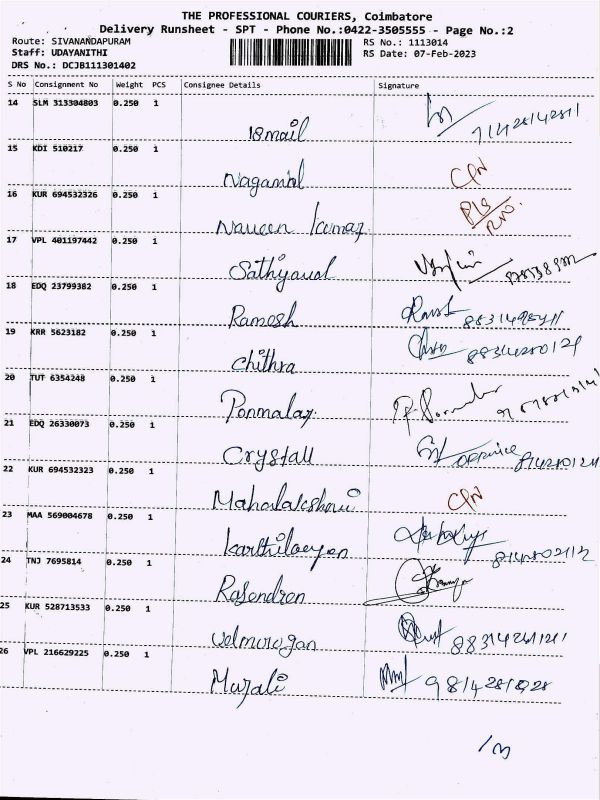 THE PROFESSIONAL COURIERS, Coimbatore
Delivery Runsheet - SPT - Phone No.:0422-3505555 - Page No.:2
Route: SIVANANDAPURAM RS No.: 1113014
Staff: UDAYANITHI RS Date: 07-Feb-2023
DRS No.: DCJB111301402
S No Consignment No Weight PCS Consignee Details Signature
14 SLM 313304803 0.250 1
Ismail
15 KDI 510217 0.250 1
Nagamal CPN
16 KUR 694532326 0.250 1
Naveen Kumar
17 VPL 401197442 0.250 1
Sathyaval
18 EDQ 23799382 0.250 1
Ramesh
19 KRR 5623182 0.250 1
Chithra
20 TUT 6354248 0.250 1
Ponmalar
21 EDQ 26330073 0.250 1
Crystall
22 KUR 694532323 0.250 1
Mahalakshmi CPN
23 MAA 569004678 0.250 1
Karthikeyan
24 TNJ 7695814 0.250 1
Rajendren
25 KUR 528713533 0.250 1
Velmurogan
26 VPL 216629225 0.250 1
Murali